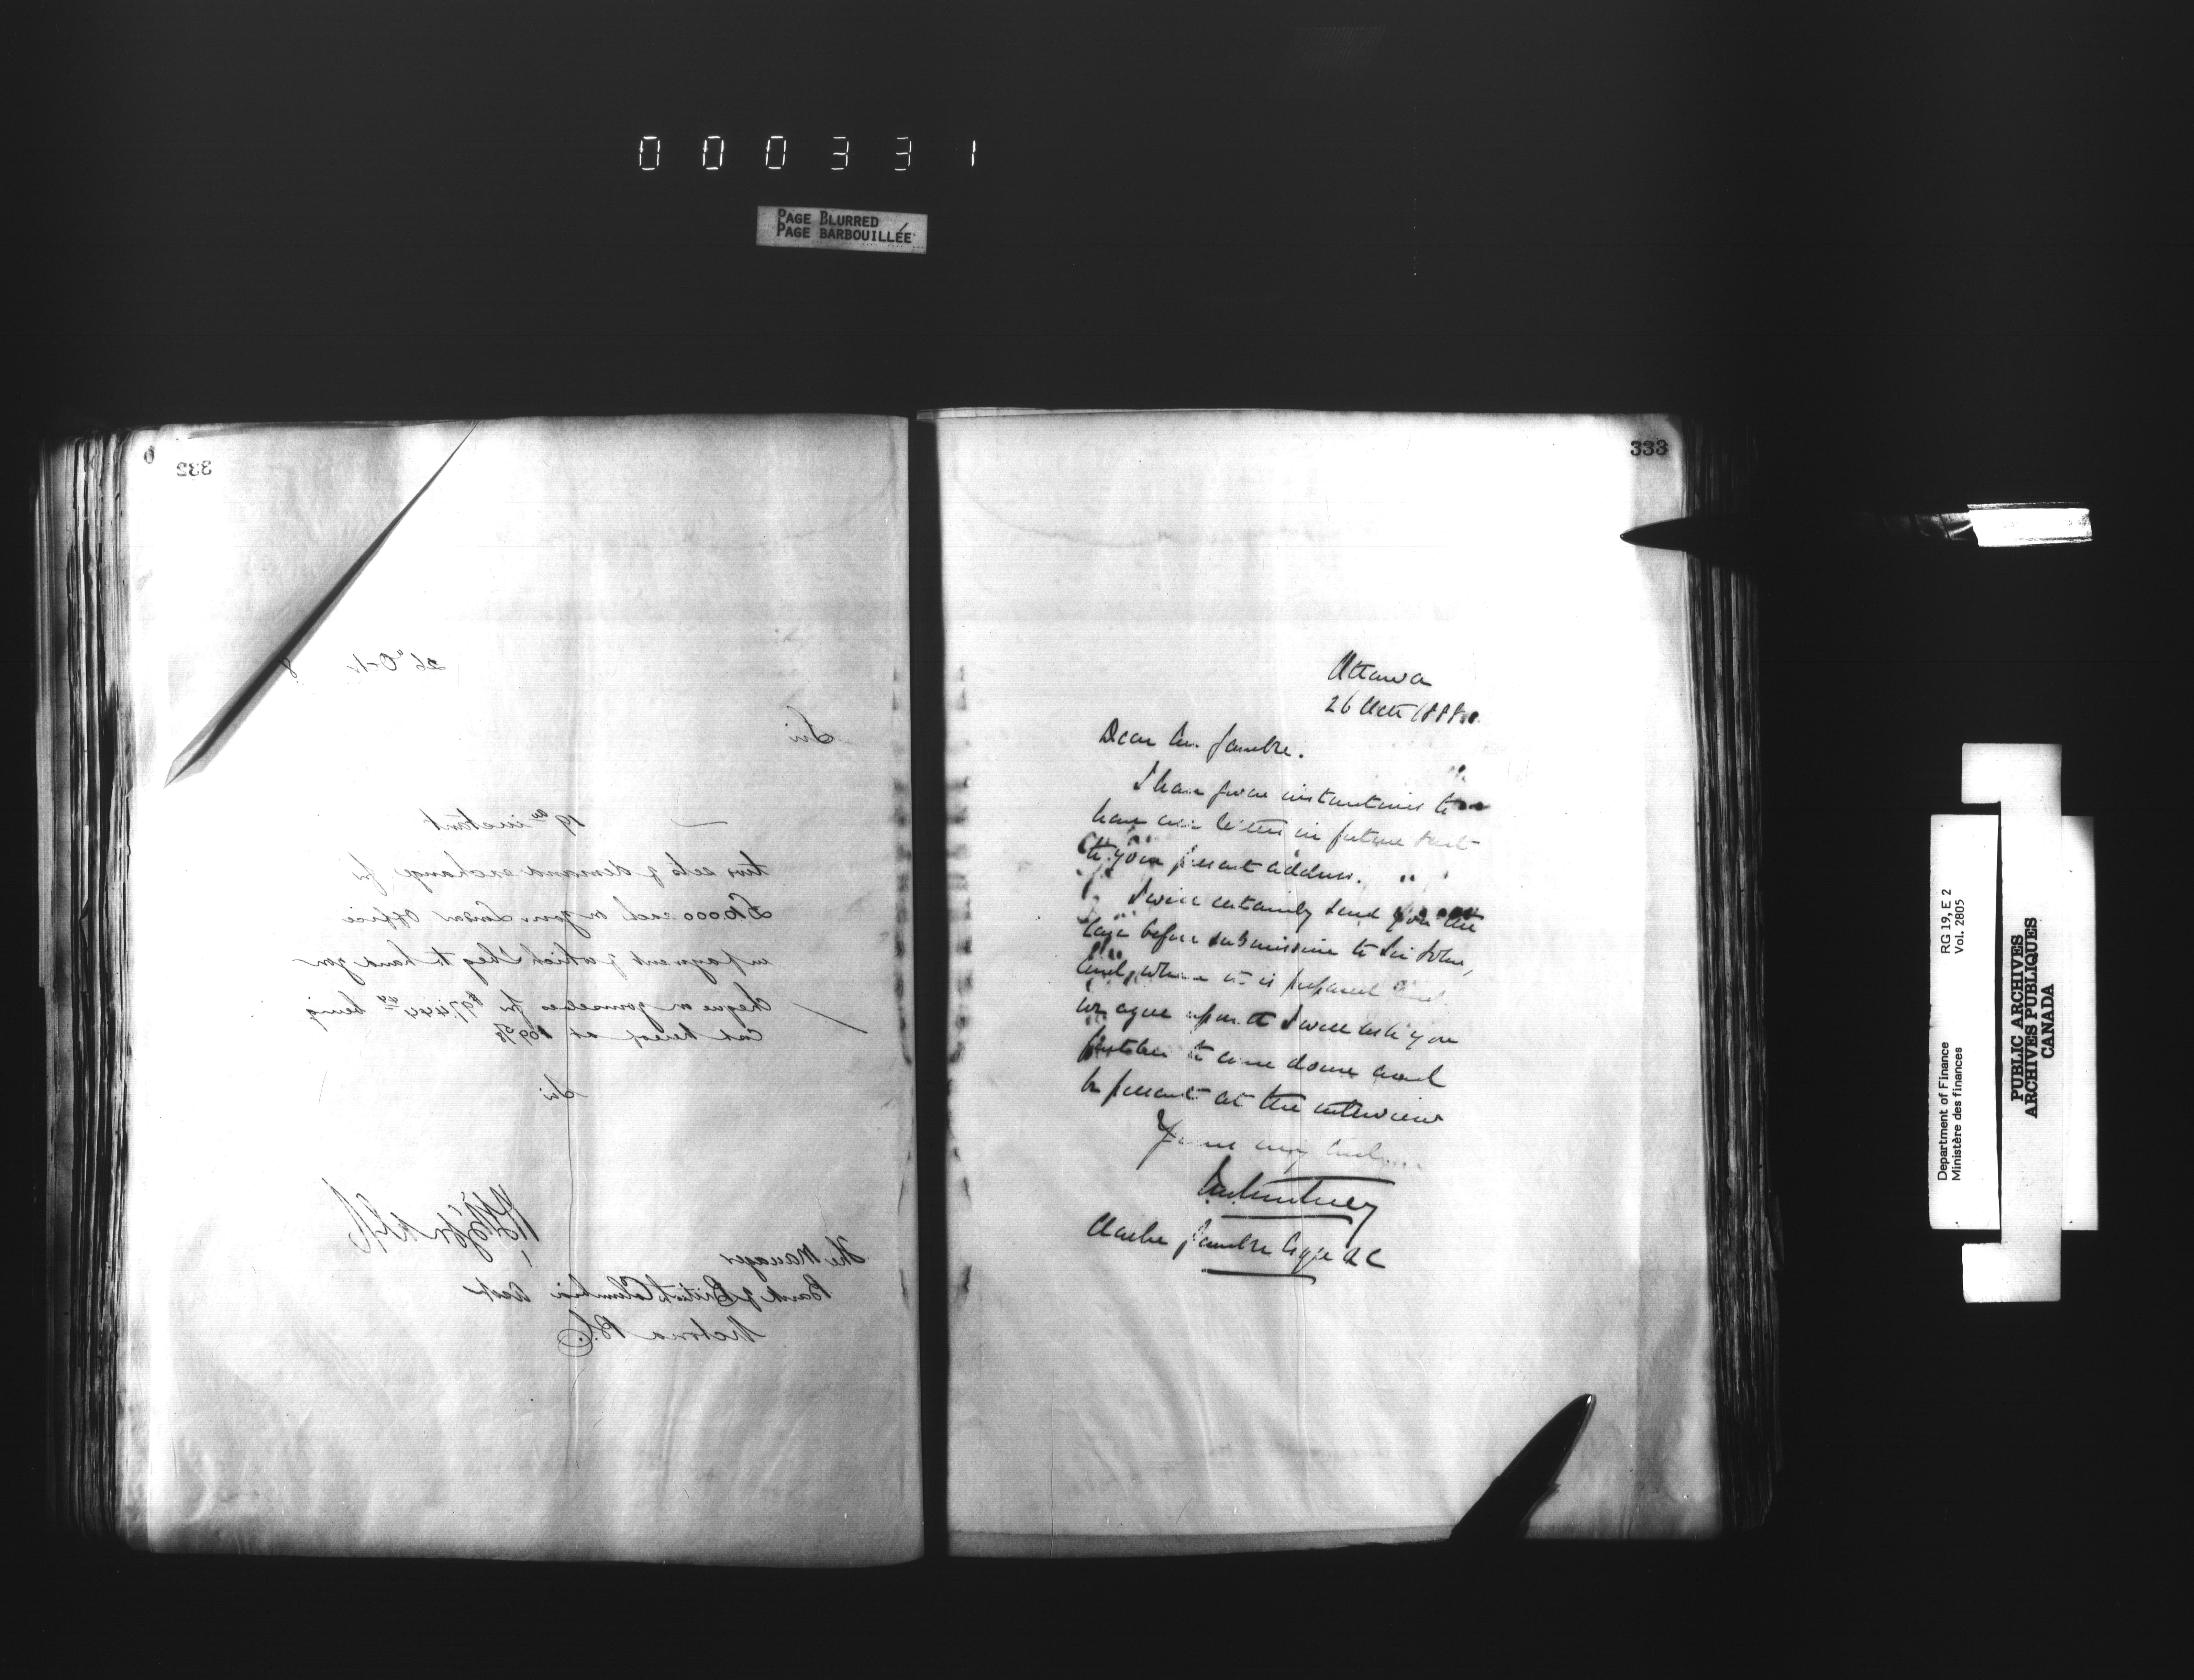 000331
PAGE BLURRED
PAGE BARBOUILLÉE
332
26th Oct 8
Sir
19th instant
two sets of demand exchange for
£10000 each on your London Office
in payment of which I beg to hand you
cheque on yourselves for $97,444.44 being
cost thereof at 109 5/8
Sir
The Manager
Bank of British Columbia
Victoria B.C.
333
Ottawa
26 Octr 1888
Dear Mr. Gamble.
I have given instructions to
have our letters in future sent
to your present address.
I will certainly send you the
case before submission to Sir John,
and, when it is prepared and
we agree upon it I will ask you
to come down and
be present at the interview
Yours very truly
Clarke Gamble Esqre Q C
Department of Finance RG 19, E 2
Ministère des finances Vol. 2805
PUBLIC ARCHIVES
ARCHIVES PUBLIQUES
CANADA